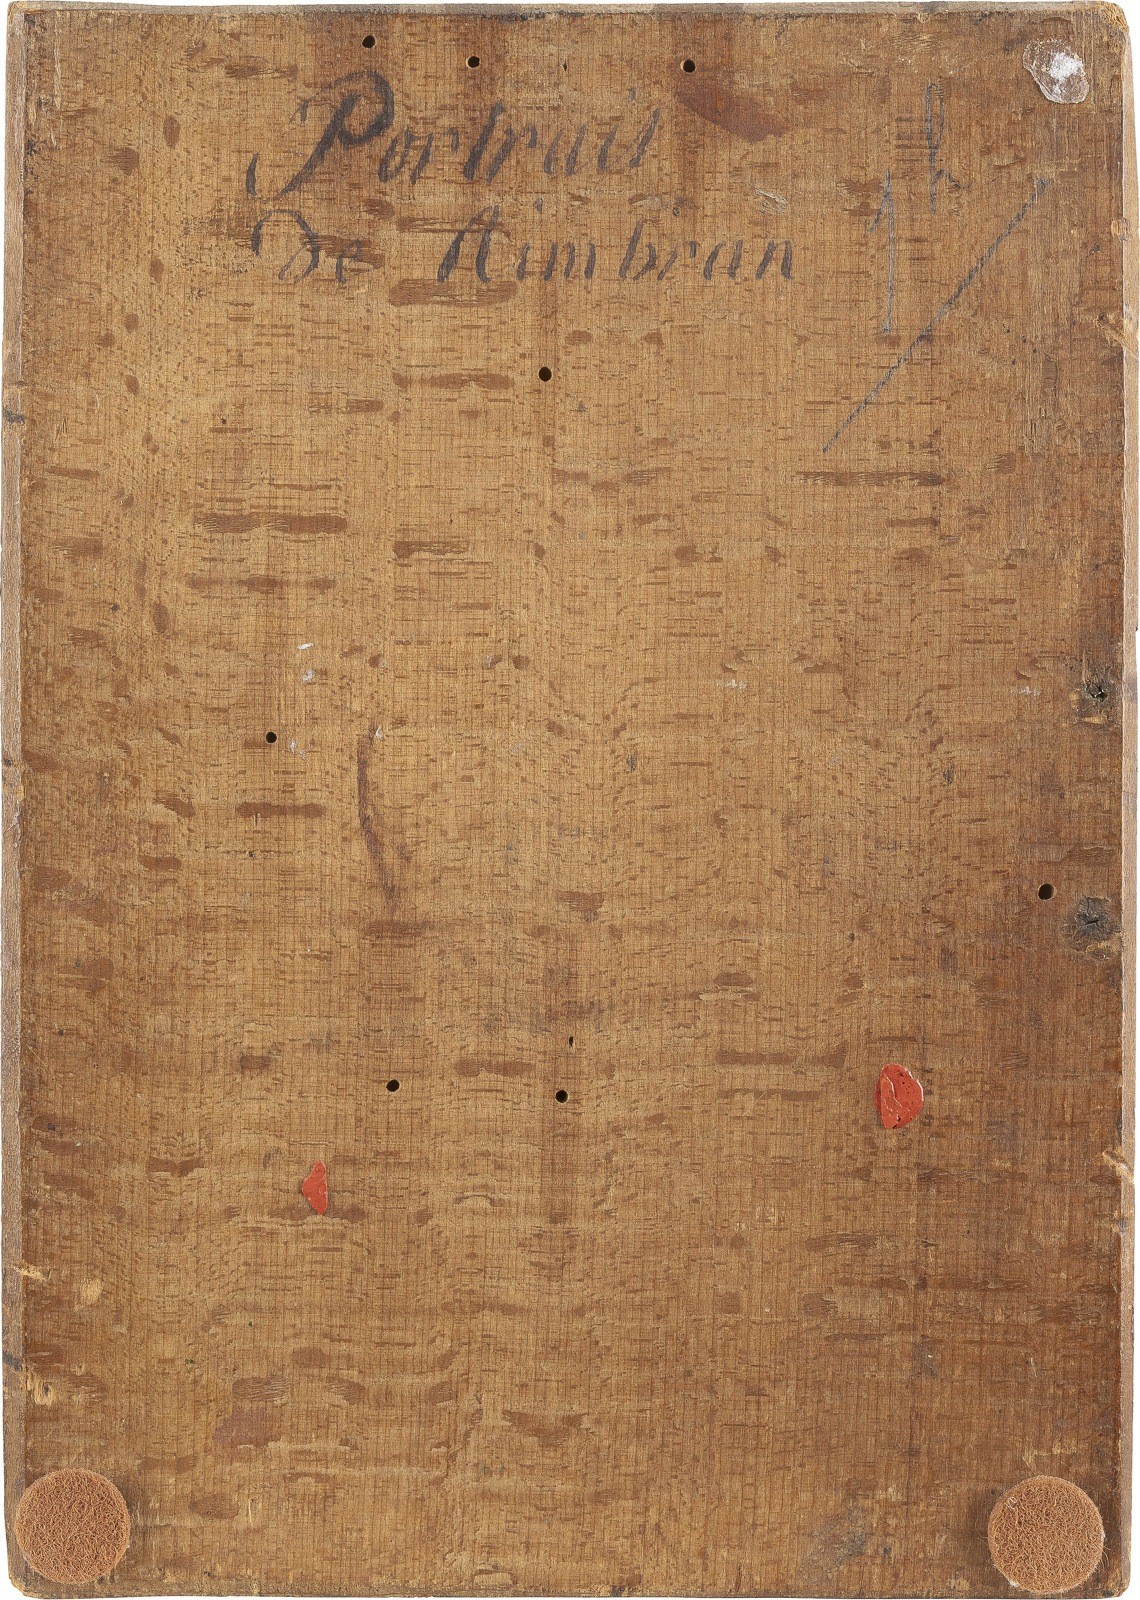 Portrait
De Aimbran